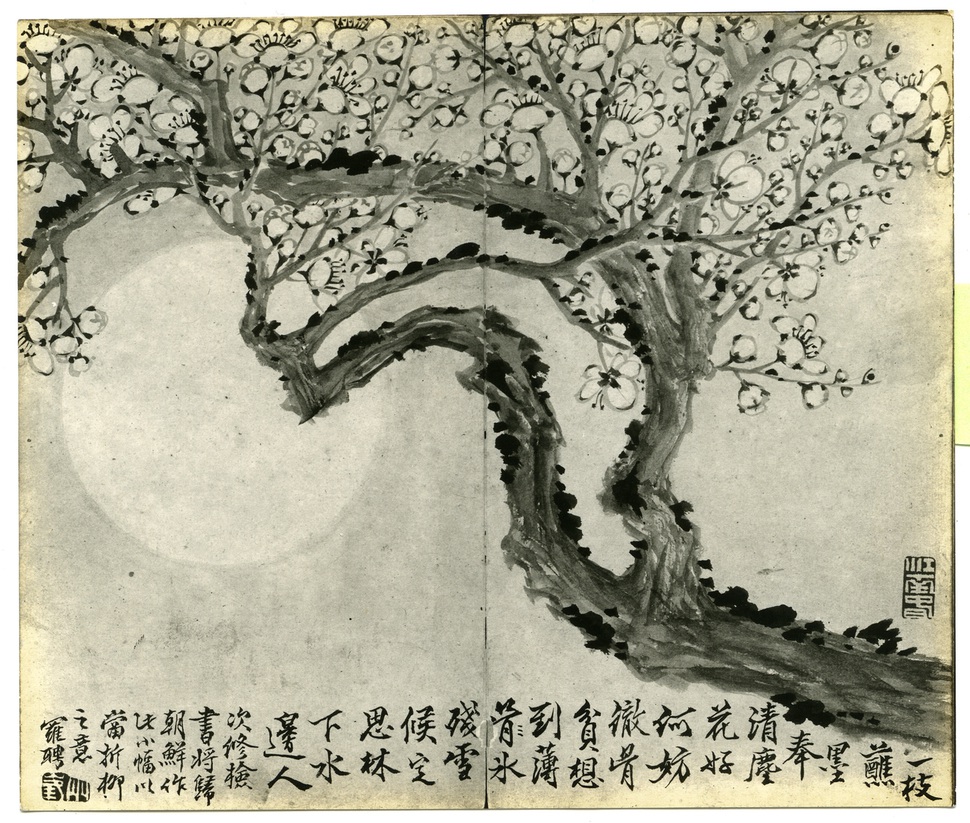 一枝
蘸
墨
奉
清塵
花好
何妨
徹骨
貧想
到薄
骨冰
殘雪
候定
思林
下水
邊人
次修檢
書將歸
朝鮮作
此小幅以
當折柳
之意
羅聘